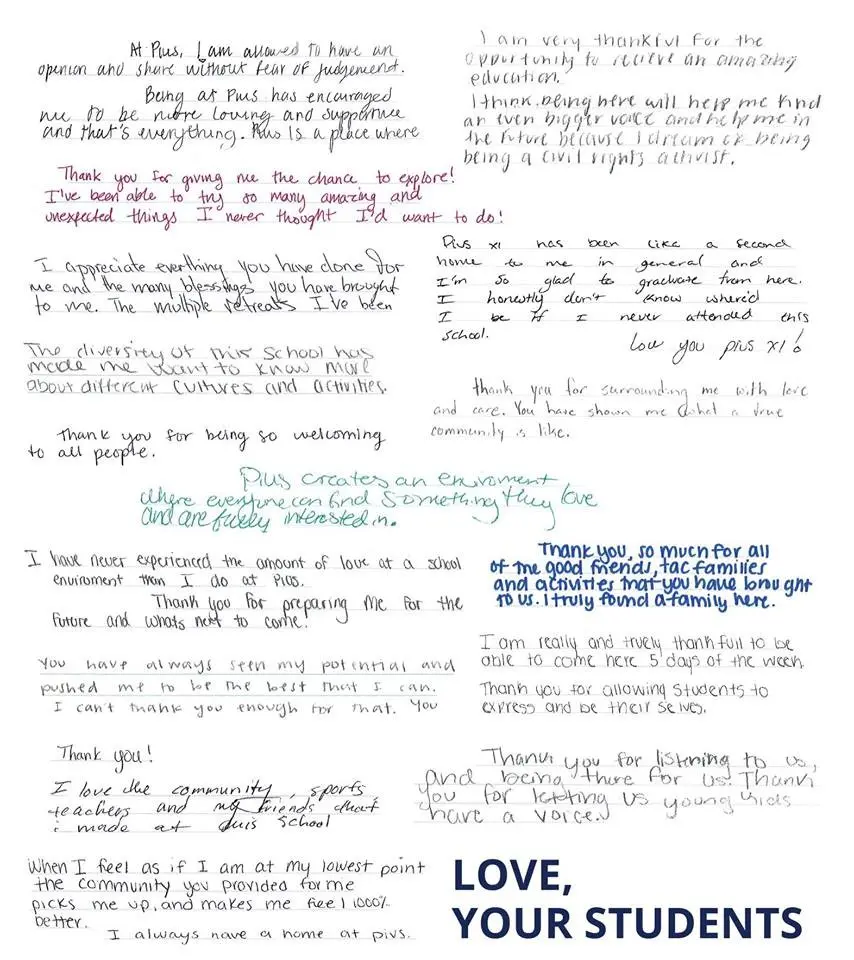 At Pius, I am allowed to have an
opinion and share without fear of judgement.
Being at Pius has encouraged
me to be more loving and supportive
and that's everything. Pius is a place where
I am very thankful for the
opportunity to recieve an amazing
education.
I think being here will help me find
an even bigger voice and help me in
the future because I dream of being
being a civil rights activist.
Thank you for giving me the chance to explore!
I've been able to try so many amazing and
unexpected things I never thought I'd want to do!
I appreciate everthing you have done for
me and the many blessings you have brought
to me. The multiple retreats I've been
Pius XI has been like a second
home to me in general and
I'm so glad to graduate from here.
I honestly don't know where'd
I be if I never attended this
school.
Love you pius XI!
The diversity of this school has
made me want to know more
about different cultures and activities.
thank you for surrounding me with love
and care. You have shown me what a true
community is like.
Thank you for being so welcoming
to all people.
Pius creates an enviroment
where everyone can find something they love
and are freely interested in.
I have never experienced the amount of love at a school
enviroment than I do at Pius.
Thank you for preparing me for the
future and whats next to come!
Thank you, so much for all
of the good friends, tac families
and activities that you have brought
to us. I truly found a family here.
You have always seen my potential and
pushed me to be the best that I can.
I can't thank you enough for that. You
I am really and truely thankfull to be
able to come here 5 days of the week
Thank you for allowing students to
express and be their selves.
Thank you!
I love the community, sports
teachers and my friends that
i made at this school
Thank you for listening to us,
and being there for us. Thank
you for letting us young kids
have a voice.
When I feel as if I am at my lowest point
the community you provided for me
picks me up, and makes me feel 1000%
better.
I always have a home at pius.
LOVE,
YOUR STUDENTS